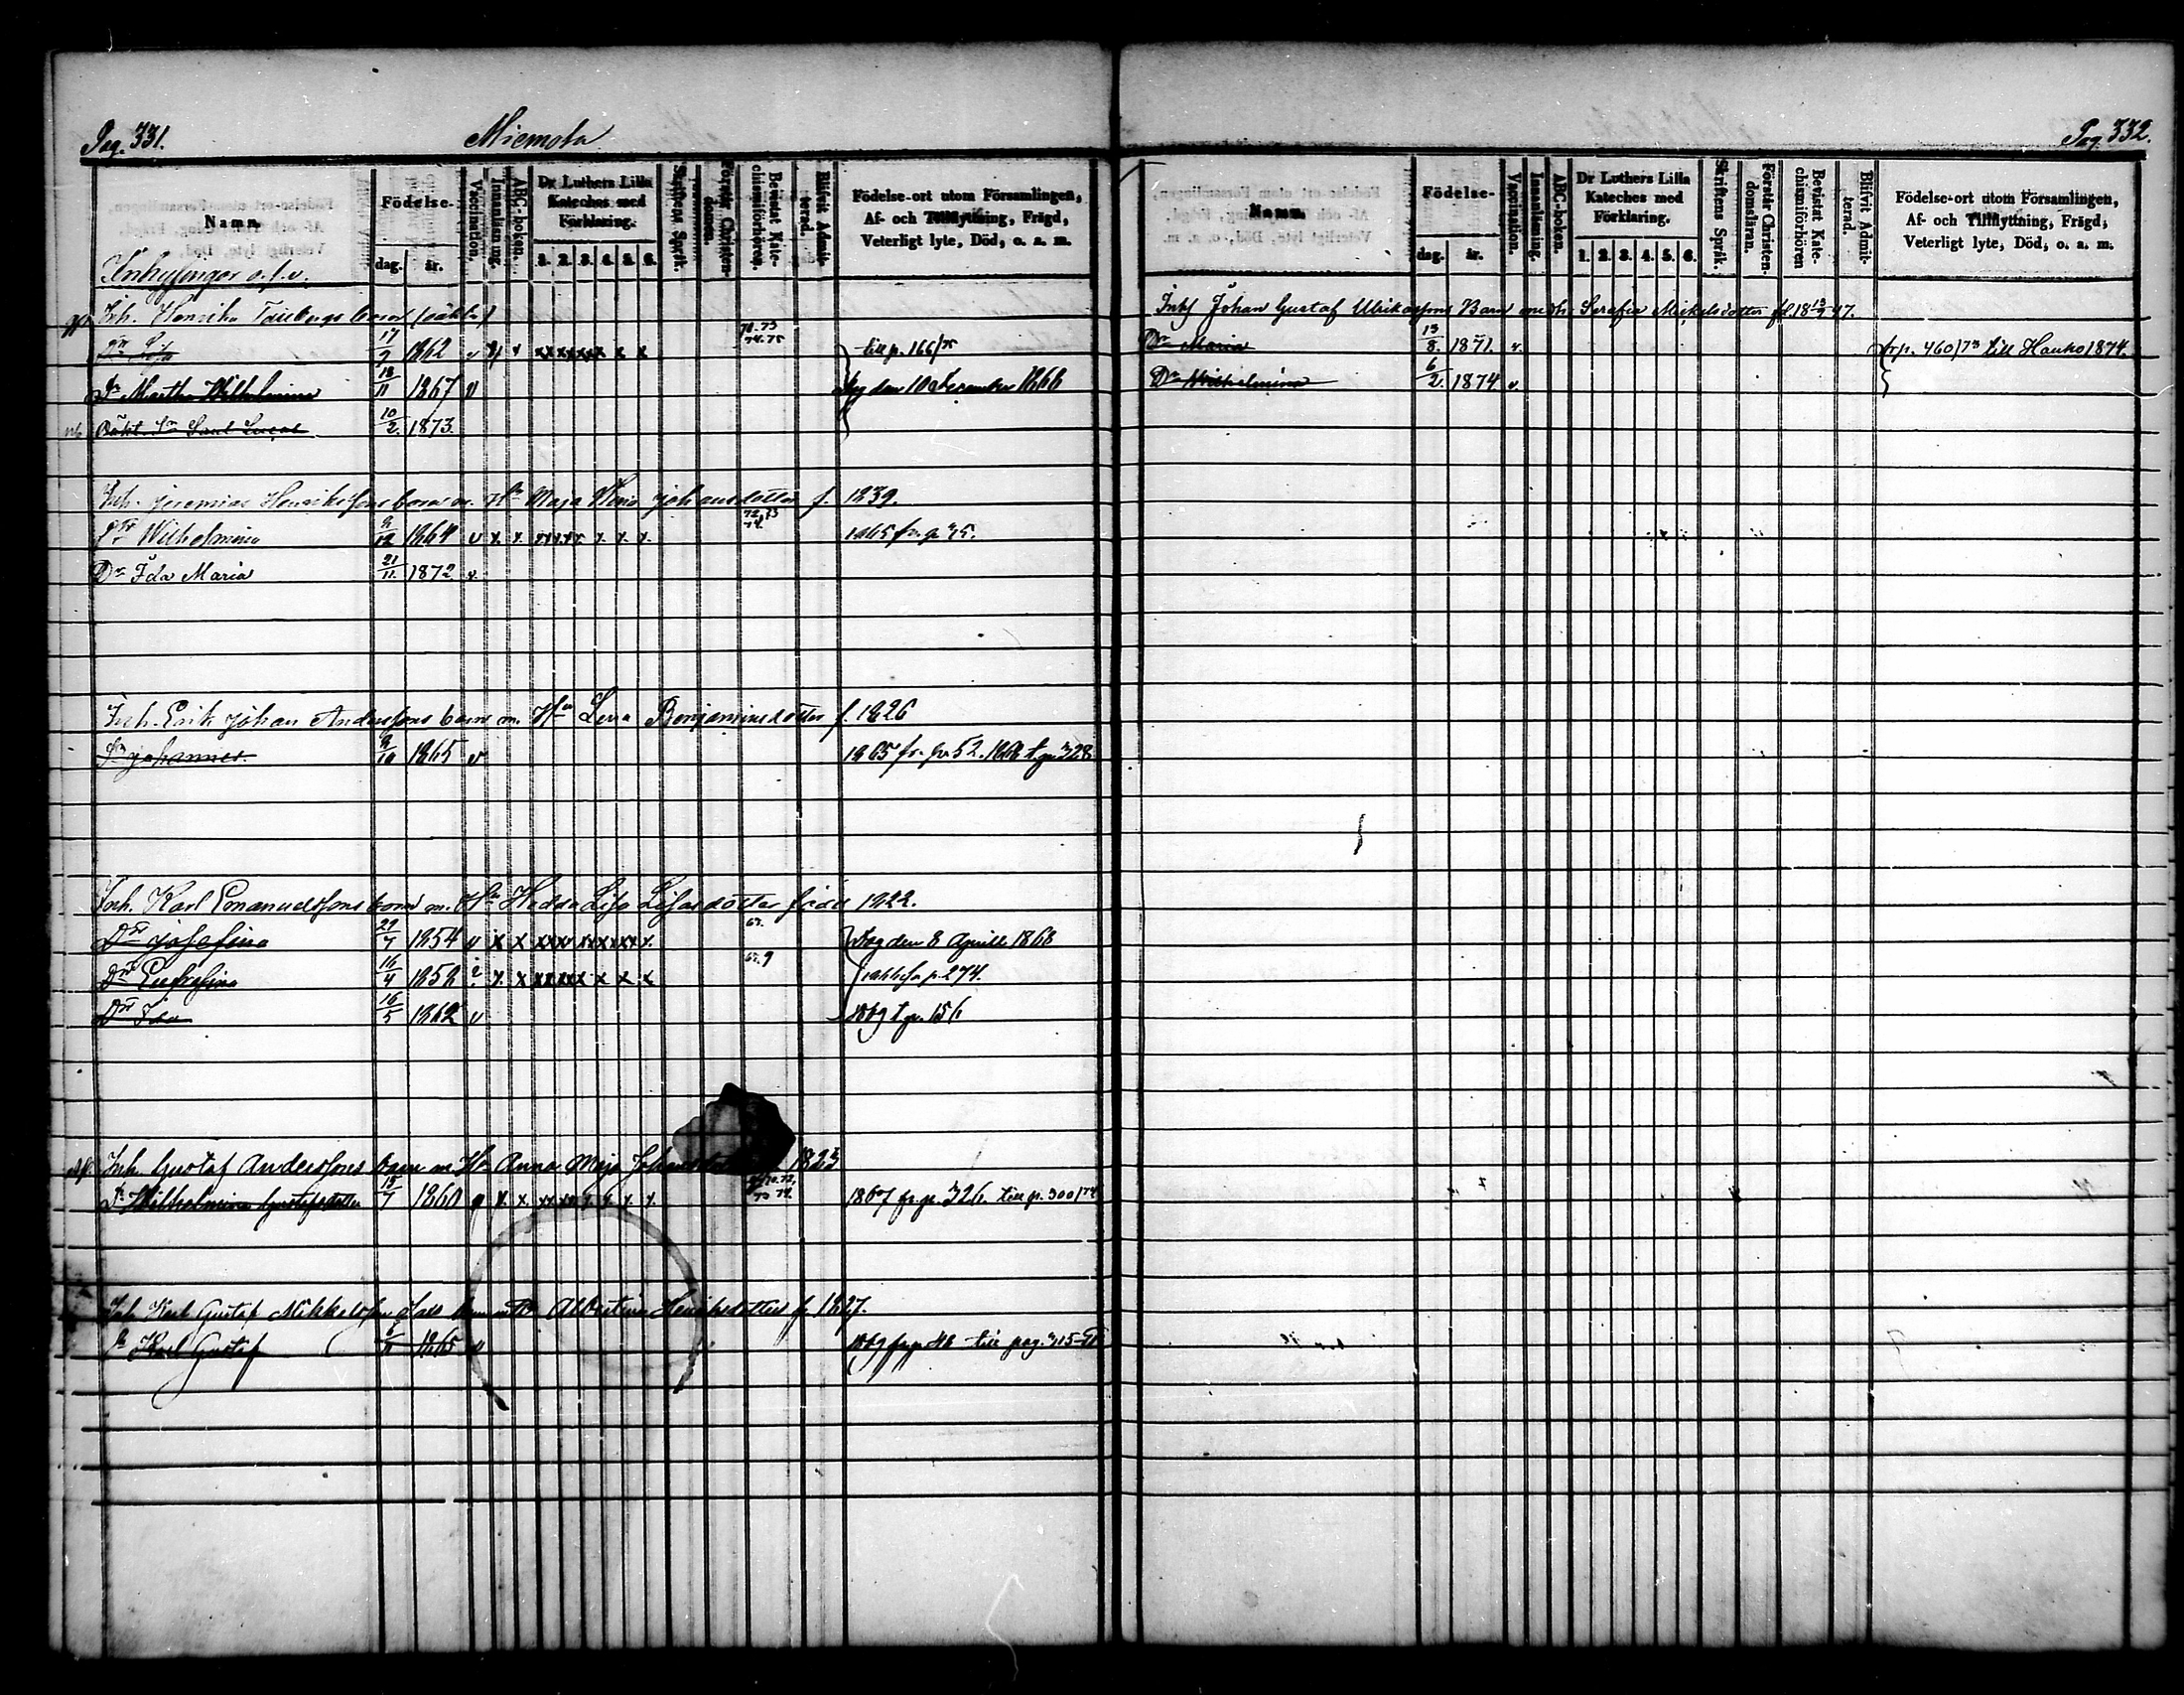 Pag. 331.
Miemola
Namn.
Födelse-
dag.
år.
Vaccination.
Innanläsning.
ABC-boken.
Dr Luthers Lilla
Kateches med
Förklaring.
1. 2. 3. 4. 5. 6.
Skriftens Språk.
Förstår Christen-
domen.
Bevistat Kate-
chismiförhören.
Blifvit Admit-
terad.
Födelse-ort utom Församlingen,
Af- och Tillflyttning, Frägd,
Veterligt lyte, Död, o. a. m.
Inhysingar o. s. v.
Inh. Henrika barn (oäkta)
72.73
74.75
17/9 1862 v x v xxxxxx x x till p. 166/75
Dr Martha Wilhelmina 18/11 1867 v dog den 10 December 1868
Oäkt. Sn 10/2. 1873.
Inh. Jeremias Henrikssons barn m. Hu Maja Johansdotter f. 1839.
72,73
74.
Dr Wilhelmina 1864 v x. x 1865 fr. p. 35.
Dr Ida Maria 21/11. 1872 v.
Inh. Erik Johan Anderssons barn m. Hu Lena Benjaminsdotter f. 1826
Sn Johannes. 9/10 1865 v 1865 fr. p. 52. 1868 t. p. 328
Inh. Karl Emanuelssons barn m. Hu Hedda Lisa Lisasdotter född 1822.
Dr Josefina 1854 v x x dog den 8 Aprill 1868
Dr Eufrosina 16/4 1858 x. x x x x fr p. 274.
Dr Ida 16/5 1862 v 1869 t p. 156
Inh. Gustaf Anderssons barn m. Hu Anna Maja 1823
Dr Wilhelmina Gustafsdotter 15/7 1860 x. x. 1867 fr. p. 326. till p. 300/74
Inh. Karl Gustaf Mikkelsson barn m. Hu Albertina Henriksdotter f. 1827.
Sn Karl Gustaf 1865 v 1869 fr p 46 till pag. 315
Pag. 332.
Namn.
Födelse-
dag.
år.
Vaccination.
Innanläsning.
ABC-boken.
Dr Luthers Lilla
Kateches med
Förklaring.
1. 2. 3. 4. 5. 6.
Skriftens Språk.
Förstår Christen-
domsläran.
Bevistat Kate-
chismiförhören
Blifvit Admit-
terad.
Födelse-ort utom Församlingen,
Af- och Tillflyttning, Frägd,
Veterligt lyte, Död, o. a. m.
Inhs Johan Gustaf Ulrikassons Barn med h. Serafia Mickelsdotter fd. 18 47.
Dr Maria 13/8. 1871. v. fr p. 460/73 till Hauho 1874.
Dr Wilhelmina 6/2. 1874 v.